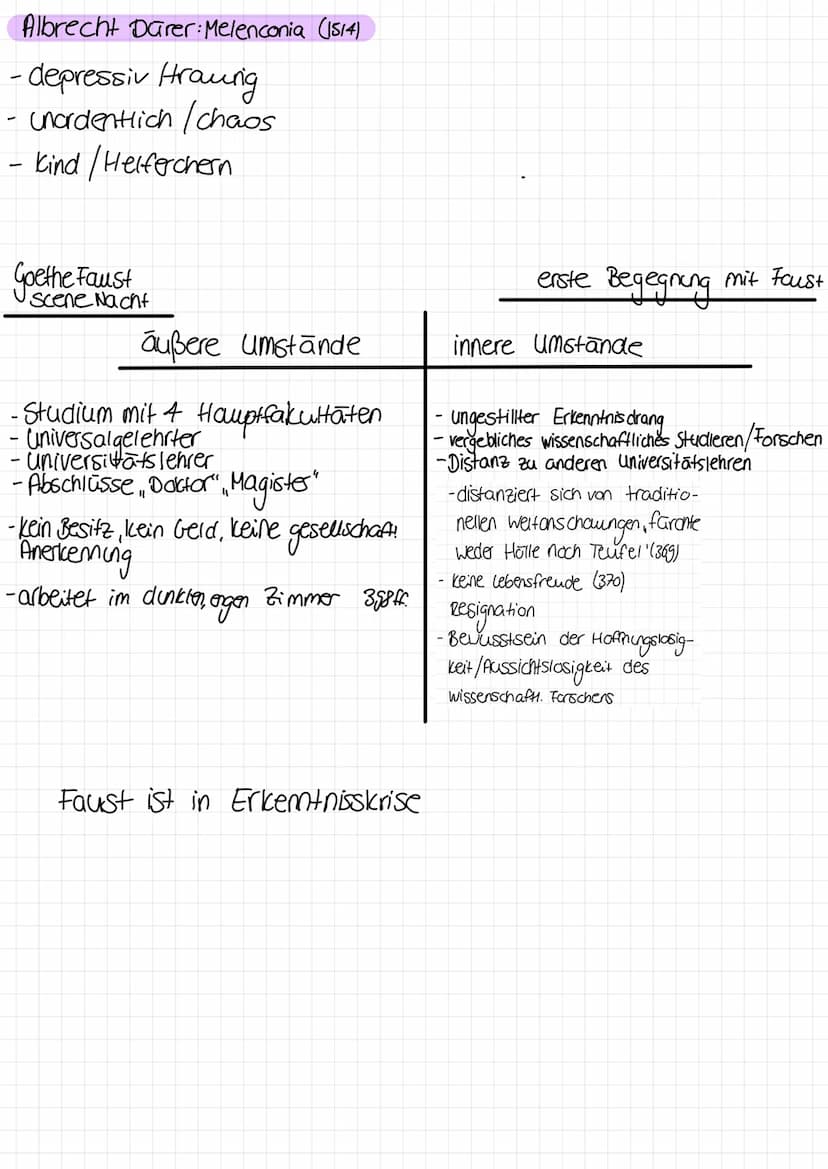 Albrecht Dürer: Melenconia (1514)
- depressiv / traurig
- unordentlich / chaos
- Kind / Helferchern
Goethe Faust
scene Nacht
erste Begegnung mit Faust
äußere Umstände
innere Umstände
- Studium mit 4 Hauptfakultäten
- Universalgelehrter
- Universitätslehrer
- Abschlüsse „Doktor“ „Magister“
- kein Besitz, kein Geld, keine gesellschaftl
Anerkennung
- arbeitet im dunklen, engen Zimmer 398 ff.
- ungestillter Erkenntnisdrang
- vergebliches wissenschaftliches Studieren/Forschen
- Distanz zu anderen Universitätslehren
- distanziert sich von traditio-
nellen Weltanschauungen, fürchte
weder Hölle noch Teufel '(369)
- keine Lebensfreude (370)
Resignation
- Bewusstsein der Hoffnungslosig-
keit/Aussichtslosigkeit des
wissenschaftl. Forschens
Faust ist in Erkenntnisskrise